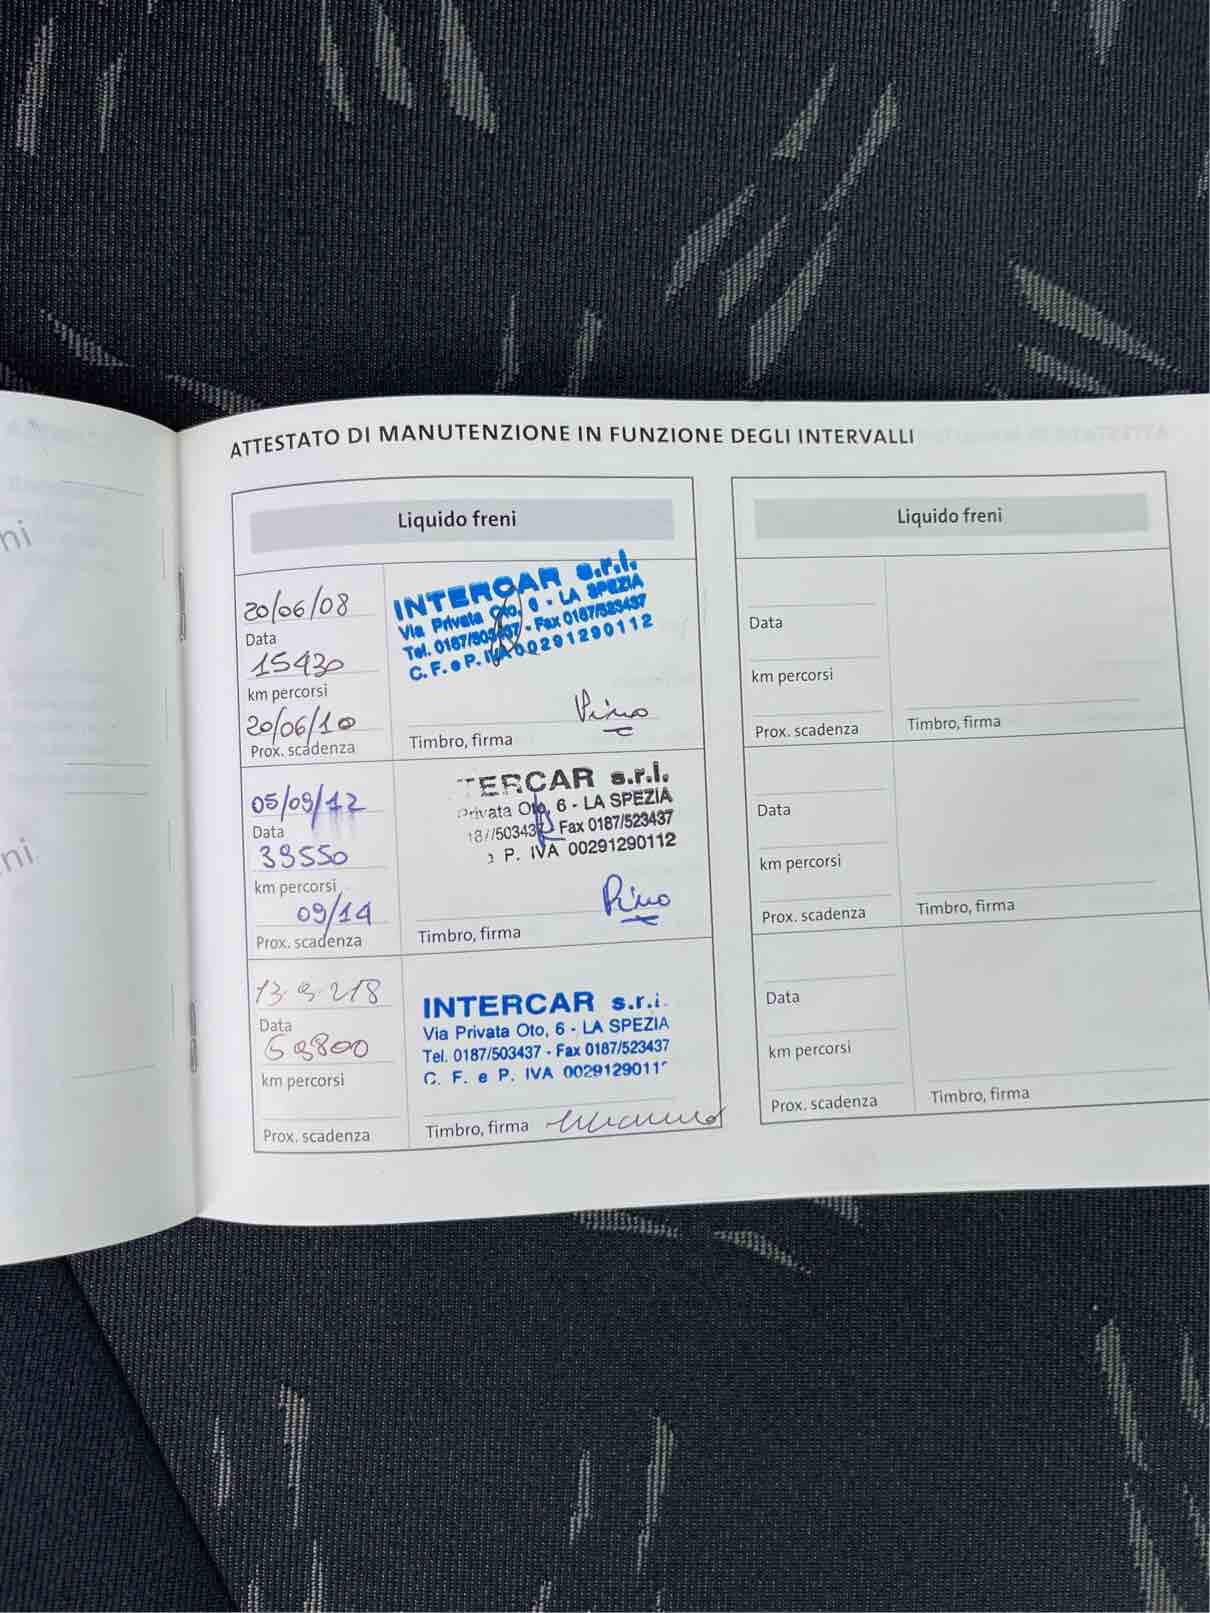 ni
ni
ATTESTATO DI MANUTENZIONE IN FUNZIONE DEGLI INTERVALLI
Liquido freni
20/06/08
Data
15430
km percorsi
20/06/10
Prox. scadenza
INTERCAR s.r.l.
Via Privata Oto, 6 - LA SPEZIA
Tel. 0187/503437 - Fax 0187/523437
C. F. e P. IVA 00291290112
Pino
Timbro, firma
05/09/12
Data
39550
km percorsi
09/14
Prox. scadenza
TERCAR s.r.l.
Privata Oto, 6 - LA SPEZIA
187/503437 Fax 0187/523437
P. IVA 00291290112
Pino
Timbro, firma
13-9-218
Data
59800
km percorsi
Prox. scadenza
INTERCAR s.r.l.
Via Privata Oto, 6 - LA SPEZIA
Tel. 0187/503437 - Fax 0187/523437
C. F. e P. IVA 0029129011
Timbro, firma
Liquido freni
Data
km percorsi
Prox. scadenza
Timbro, firma
Data
km percorsi
Prox. scadenza
Timbro, firma
Data
km percorsi
Prox. scadenza
Timbro, firma